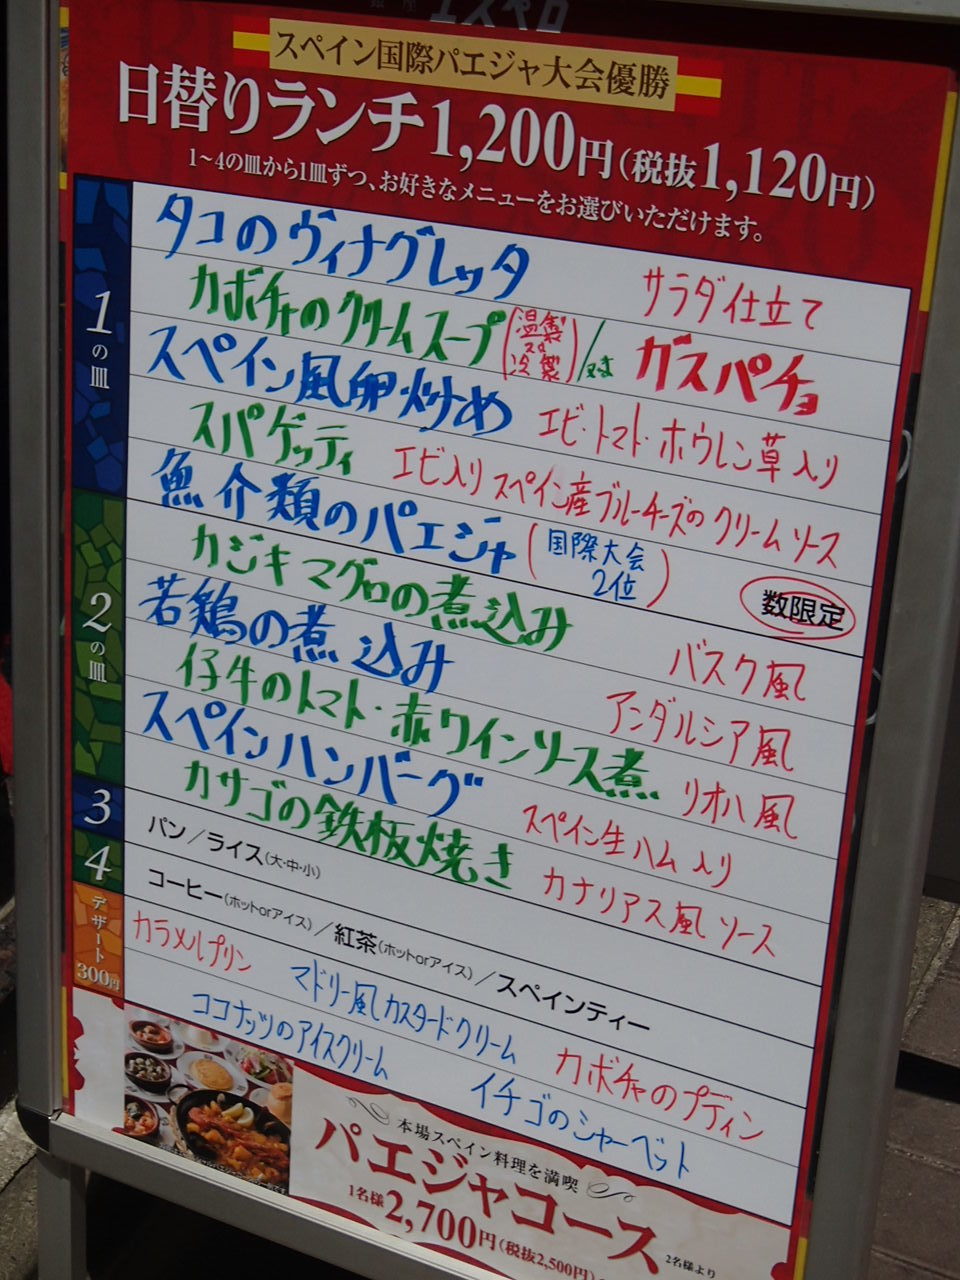 銀座 エスペロ
スペイン国際パエジャ大会優勝
日替りランチ1,200円(税抜1,120円)
1~4の皿から1皿ずつ、お好きなメニューをお選びいただけます。
1の皿
タコのヴィナグレッタ サラダ仕立て
カボチャのクリームスープ(温製又は冷製)/又はガスパチョ
スペイン風卵炒め エビ・トマト・ホウレン草入り
スパゲッティ エビ入りスペイン産ブルーチーズのクリームソース
2の皿
魚介類のパエジャ(国際大会2位) 数限定
カジキマグロの煮込み バスク風
若鶏の煮込み アンダルシア風
仔牛のトマト・赤ワインソース煮 リオハ風
スペインハンバーグ スペイン生ハム入り
カサゴの鉄板焼き カナリアス風ソース
3 パン/ライス(大・中・小)
4 コーヒー(ホットorアイス)/紅茶(ホットorアイス)/スペインティー
デザート300円
カラメルプリン マドリー風カスタードクリーム カボチャのプディン
ココナッツのアイスクリーム イチゴのシャーベット
本場スペイン料理を満喫
パエジャコース
1名様2,700円(税抜2,500円) 2名様より